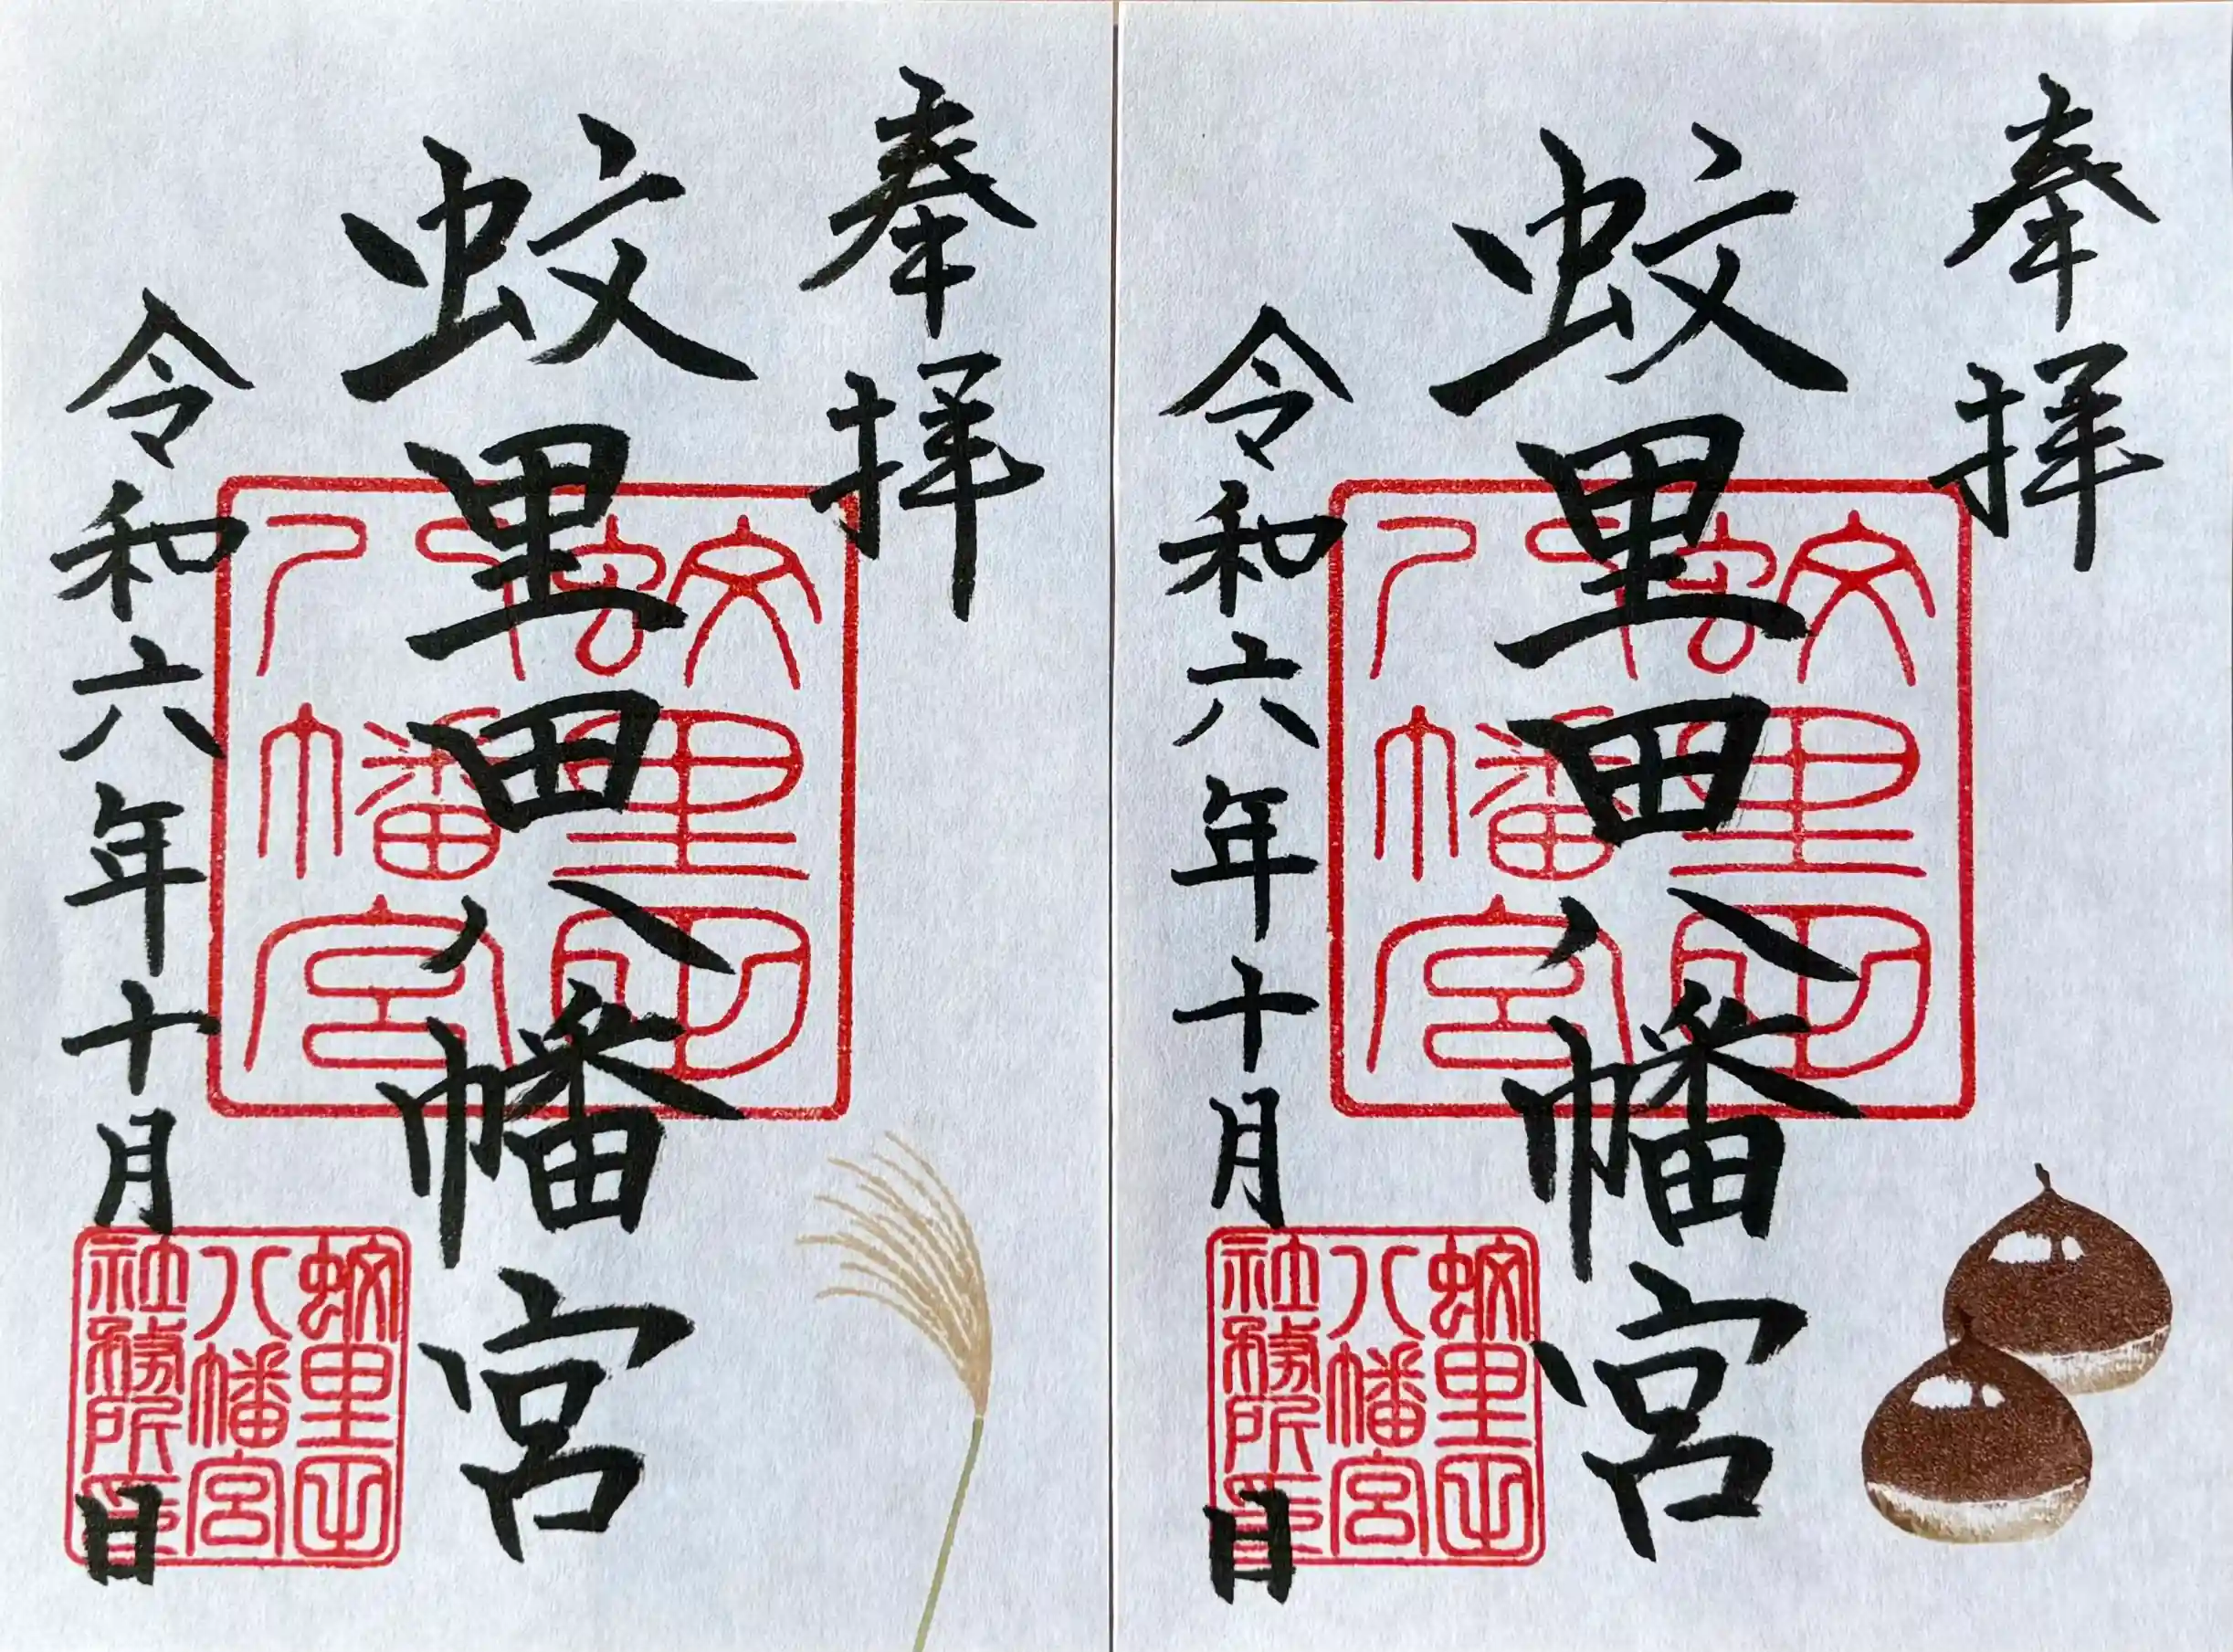 奉拝
蚊里田八幡宮
令和六年十月 日
蚊里田
八幡宮
蚊里田
八幡宮
社務所印
奉拝
蚊里田八幡宮
令和六年十月 日
蚊里田
八幡宮
蚊里田
八幡宮
社務所印